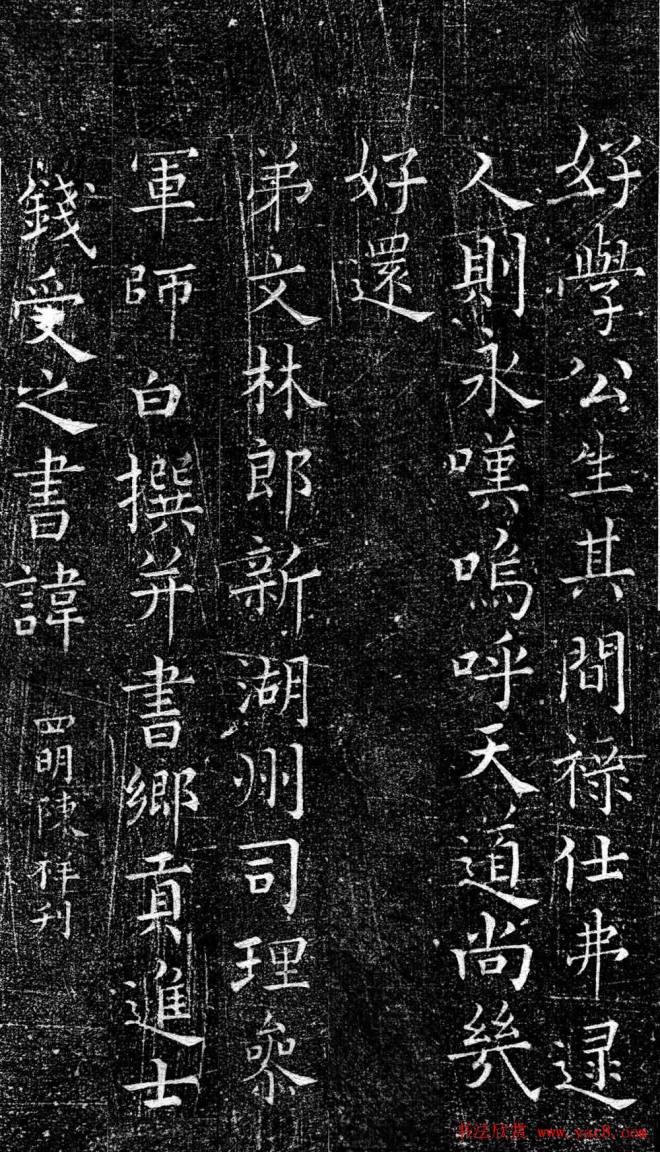 好學公生其間祿仕弗逮
人則永嘆嗚呼天道尚幾
好還
弟文林郎新湖州司理參
軍師白撰并書鄉貢進士
錢受之書諱 四明陳祥刊
书法欣赏 www.yac8.com